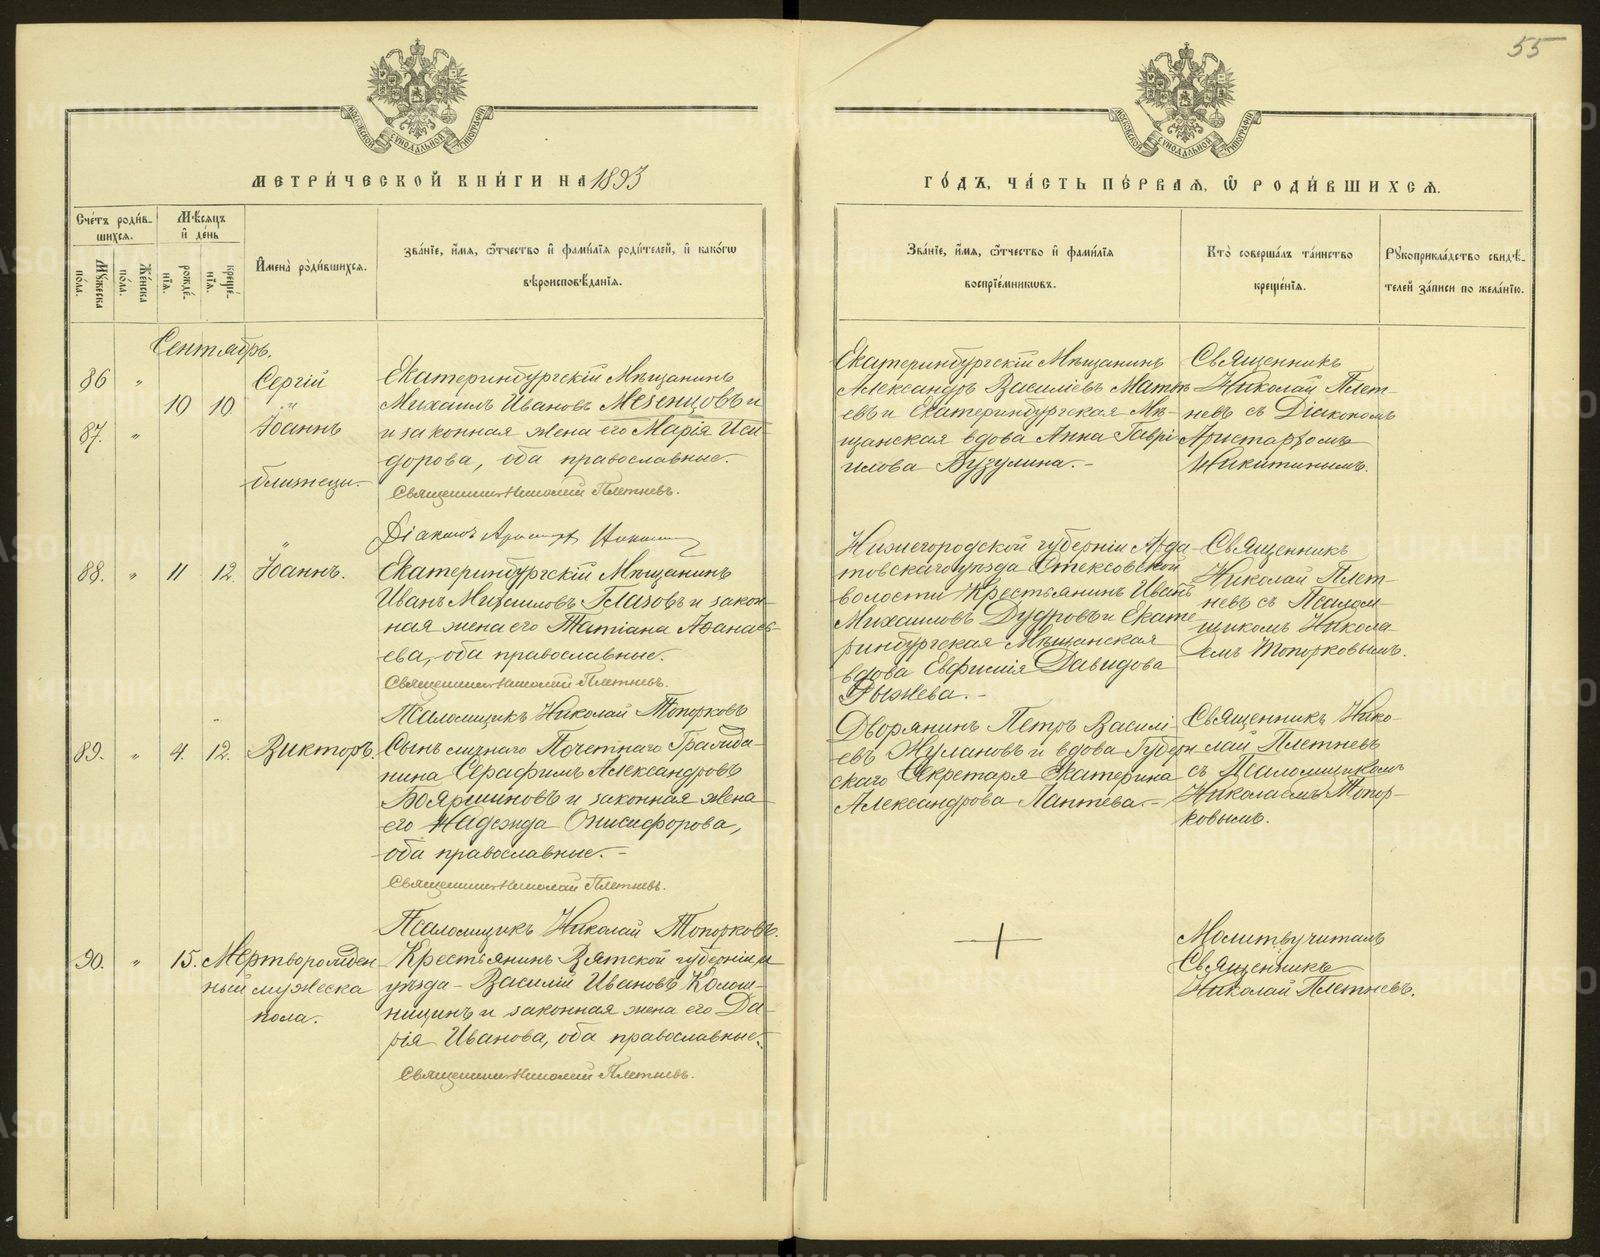 55
МЕТРИ́ЧЕСКОЙ КНИ́ГИ НА 1893
ГО́ДЪ, ЧА́СТЬ ПЕ́РВАЯ, Ѿ РОДИ́ВШИХСЯ.
Сче́тъ роди́в-
шихся.
Мѣ́сяцъ
и҆ де́нь
Мꙋ́жеска
по́ла.
Же́нска
по́ла.
рожде́-
нїѧ.
креще́-
нїѧ.
И҆мена̀ роди́вшихся.
Зва́нїе, и҆́мя, ѻ҆́тчество и҆ фами́лїя роди́телей, и҆ како́гѡ
вѣроисповѣ́данїя.
Зва́нїе, и҆́мя, ѻ҆́тчество и҆ фами́лїя
воспрїе́мникѡвъ.
Кто̀ соверша́лъ та́инство
креще́нїя.
Рꙋкоприкла́дство свидѣ́-
телей за́писи по жела́нїю.
Сентябрь.
86 " 10 10 Сергій
87. " Іоаннъ
близнецы.
Екатеринбургскій Мѣщанинъ
Михаилъ Ивановъ Мезенцовъ и
и законная жена его Марія Иси-
дорова, оба православные.
Священникъ Николай Плетневъ.
Діаконъ Аристархъ Никитинъ
Екатеринбургскій Мѣщанинъ
Александръ Василіевъ Матѳ-
евъ и Екатеринбургская Мѣ-
щанская вдова Анна Гаврі-
илова Бузулина.
Священникъ
Николай Плет-
невъ съ Діакономъ
Аристархомъ
Никитинымъ.
88. " 11 12. Іоаннъ.
Екатеринбургскій Мѣщанинъ
Иванъ Михаиловъ Глазовъ и закон-
ная жена его Татіана Аѳанась-
ева, оба православные.
Священникъ Николай Плетневъ.
Псаломщикъ Николай Топорковъ
Нижегородской губерніи Арда-
товскаго уѣзда Стексовской
волости Крестьянинъ Иванъ
Михаиловъ Дудровъ и Екате-
ринбургская Мѣщанская
вдова Евфимія Давидова
Рыжева.
Священникъ
Николай Плет-
невъ съ Псалом-
щикомъ Никола-
емъ Топорковымъ.
89. " 4. 12. Викторъ.
Сынъ личнаго Почетнаго Гражда-
нина Серафимъ Александровъ
Бояршиновъ и законная жена
его Надежда Онисифорова,
оба православные.
Священникъ Николай Плетневъ.
Псаломщикъ Николай Топорковъ.
Дворянинъ Петръ Василі-
евъ Кулановъ и вдова Губерн-
скаго Секретаря Екатерина
Александрова Лаптева.
Священникъ Нико-
лай Плетневъ
съ Псаломщикомъ
Николаемъ Топор-
ковымъ.
90. " 15. Мертворожден-
ный мужеска
пола.
Крестьянинъ Вятской губерніи и
уѣзда Василій Ивановъ Колош-
ницинъ и законная жена его Да-
рія Иванова, оба православные.
Священникъ Николай Плетневъ.
Молитву читалъ
Священникъ
Николай Плетневъ.